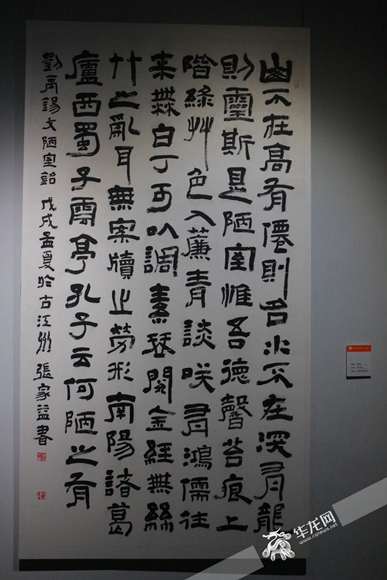 山不在高有僊則名水不在深有龍
則靈斯是陋室惟吾德馨苔痕上
階綠艸色入簾青談咲有鴻儒往
来無白丁可以調素琴閱金經無絲
竹之亂耳無案牘之勞形南陽諸葛
廬西蜀子雲亭孔子云何陋之有
劉禹錫文陋室銘 戊戌孟夏於古江州 張家益書
华龙网
www.cqnews.net